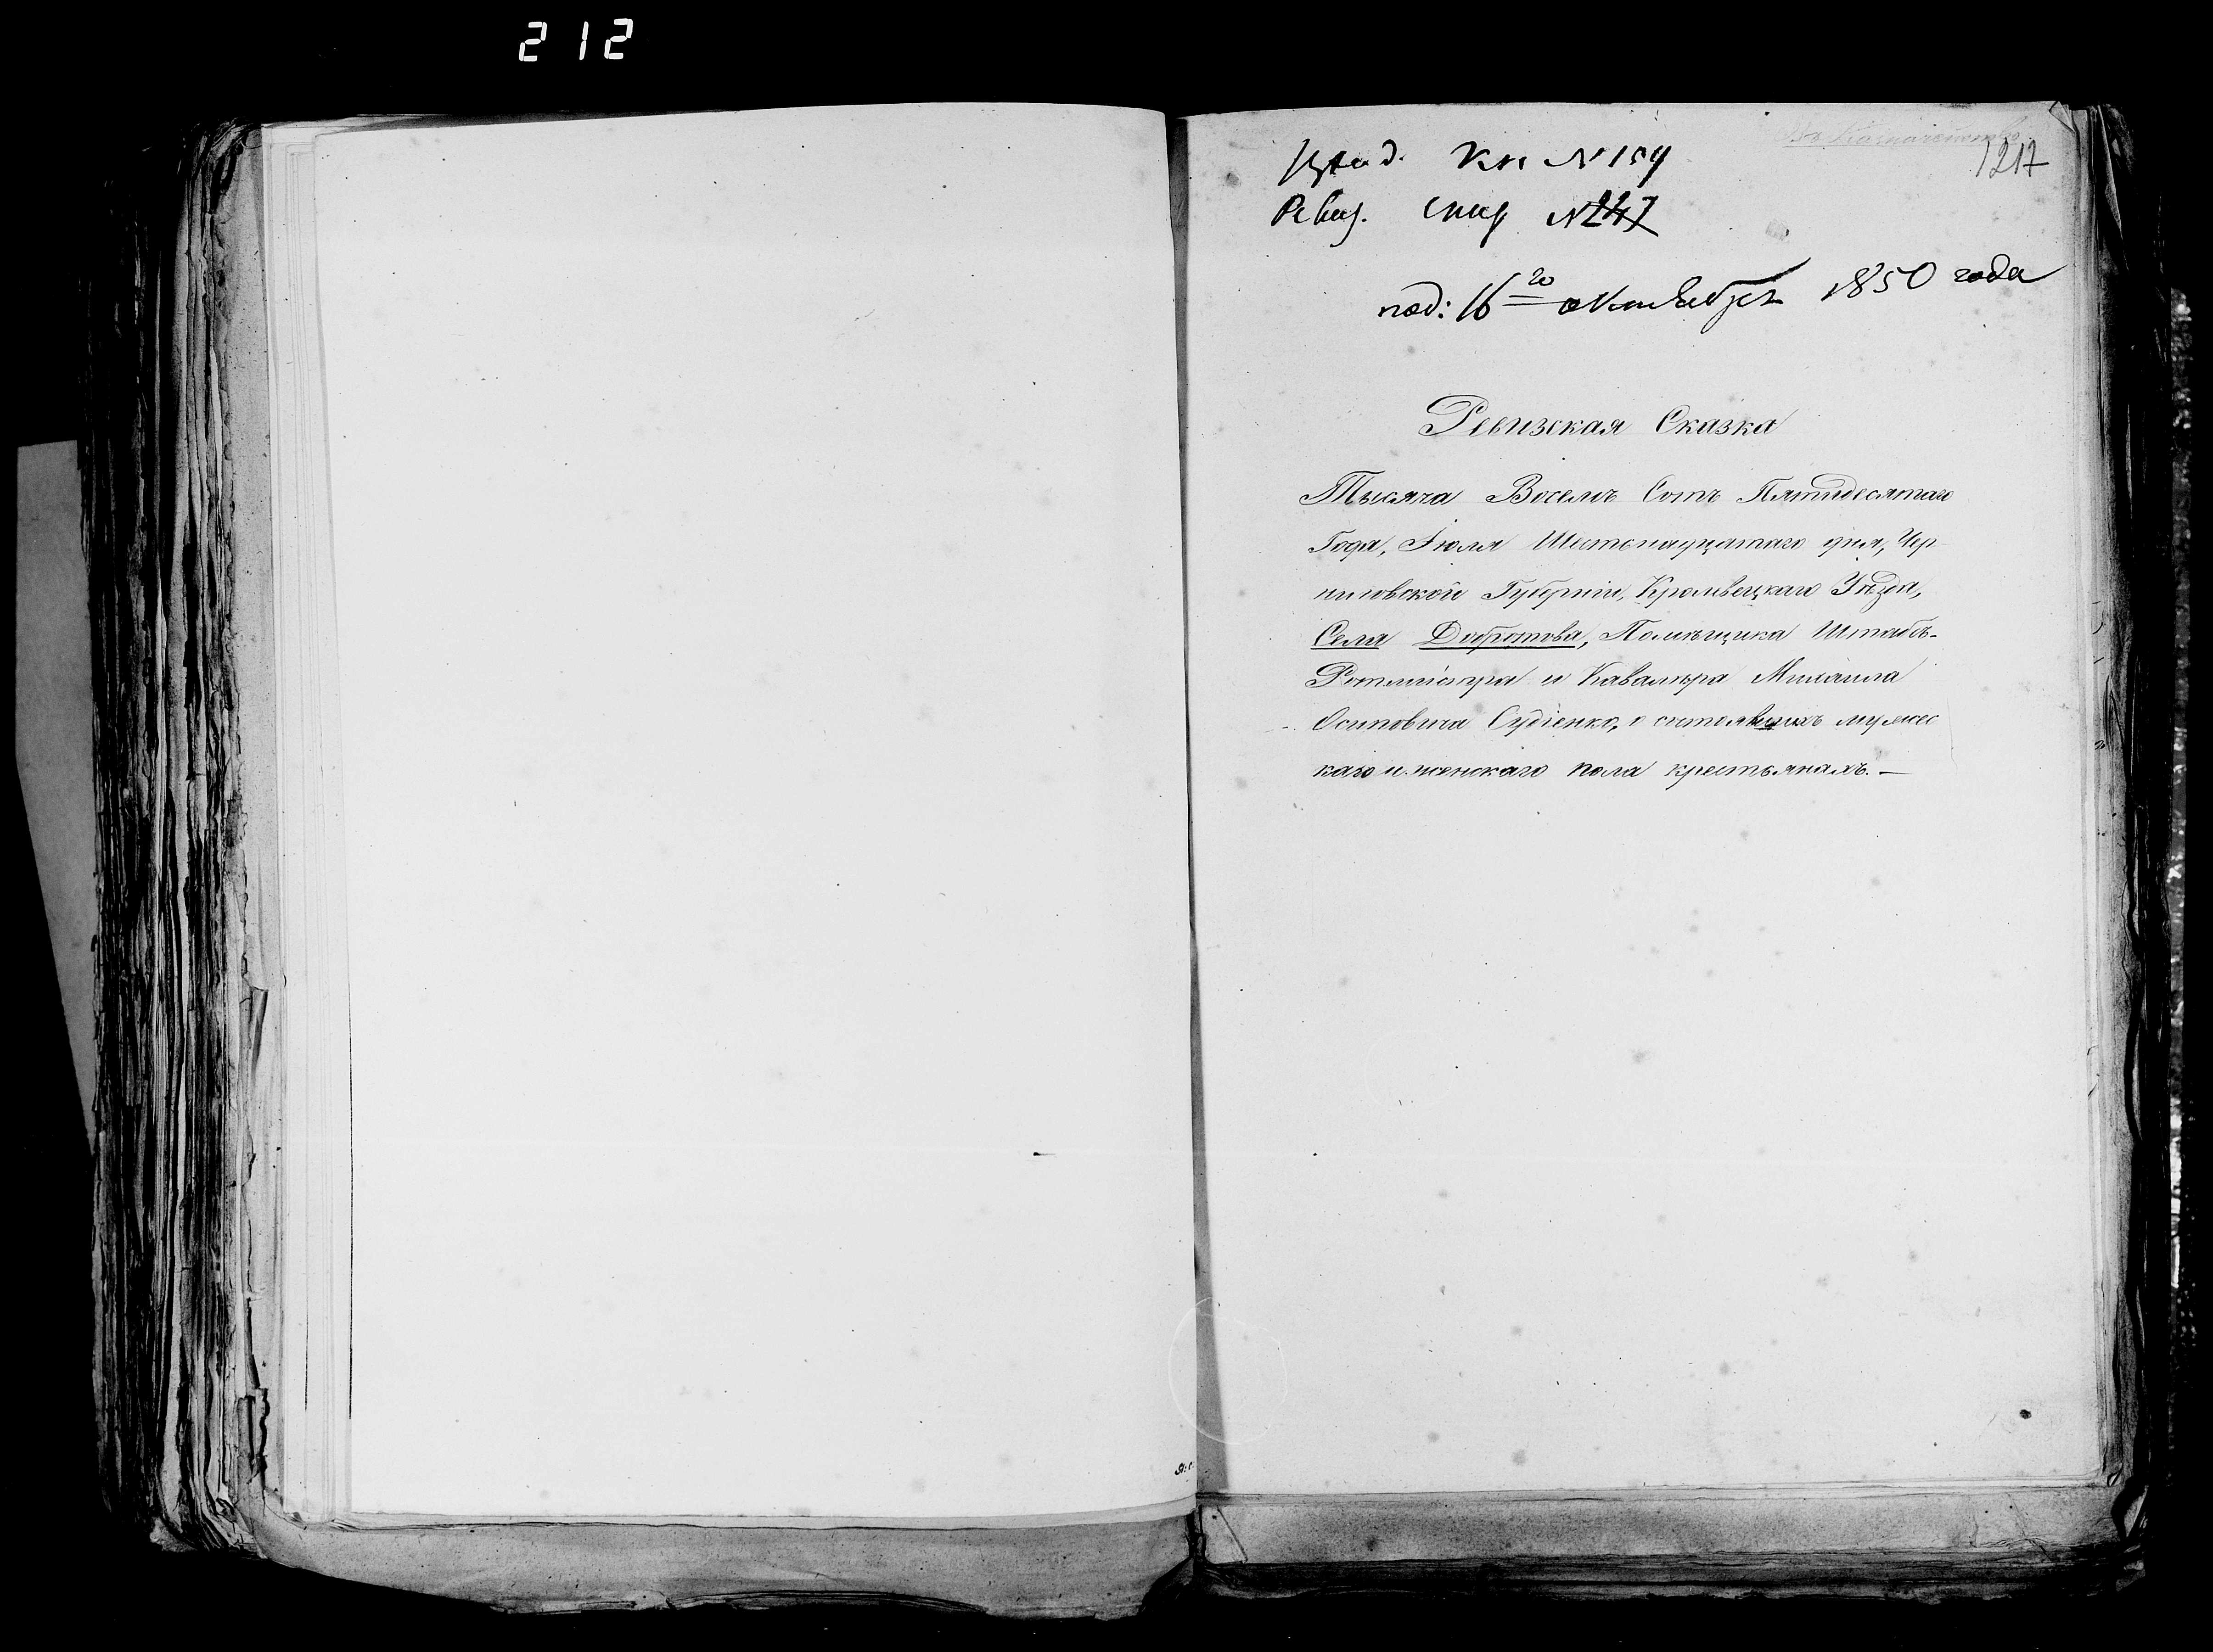 212
Въ Казначейство
1217
Кн № 154
Ревиз. Скаr № 247
под: 16го октября 1850 года
Ревизская Сказка
Тысяча Восемь Сотъ Пятидесятаго
Года, Іюля Шестонадцатаго дня, Чер-
ниговской Губерніи, Кролевецкаго Уѣзда,
Села Добротова, Помѣщика Штабъ-
Ротмистра и Кавалера Михаила
Осиповича Судіенка, о состоявшихъ мужес
каго и женскаго пола крестьянахъ. —